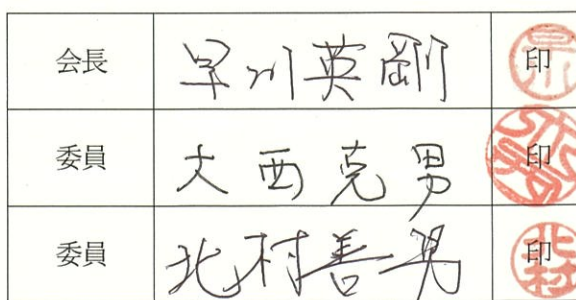 会長 早川英剛 印
委員 大西克男 印
委員 北村善晃 印